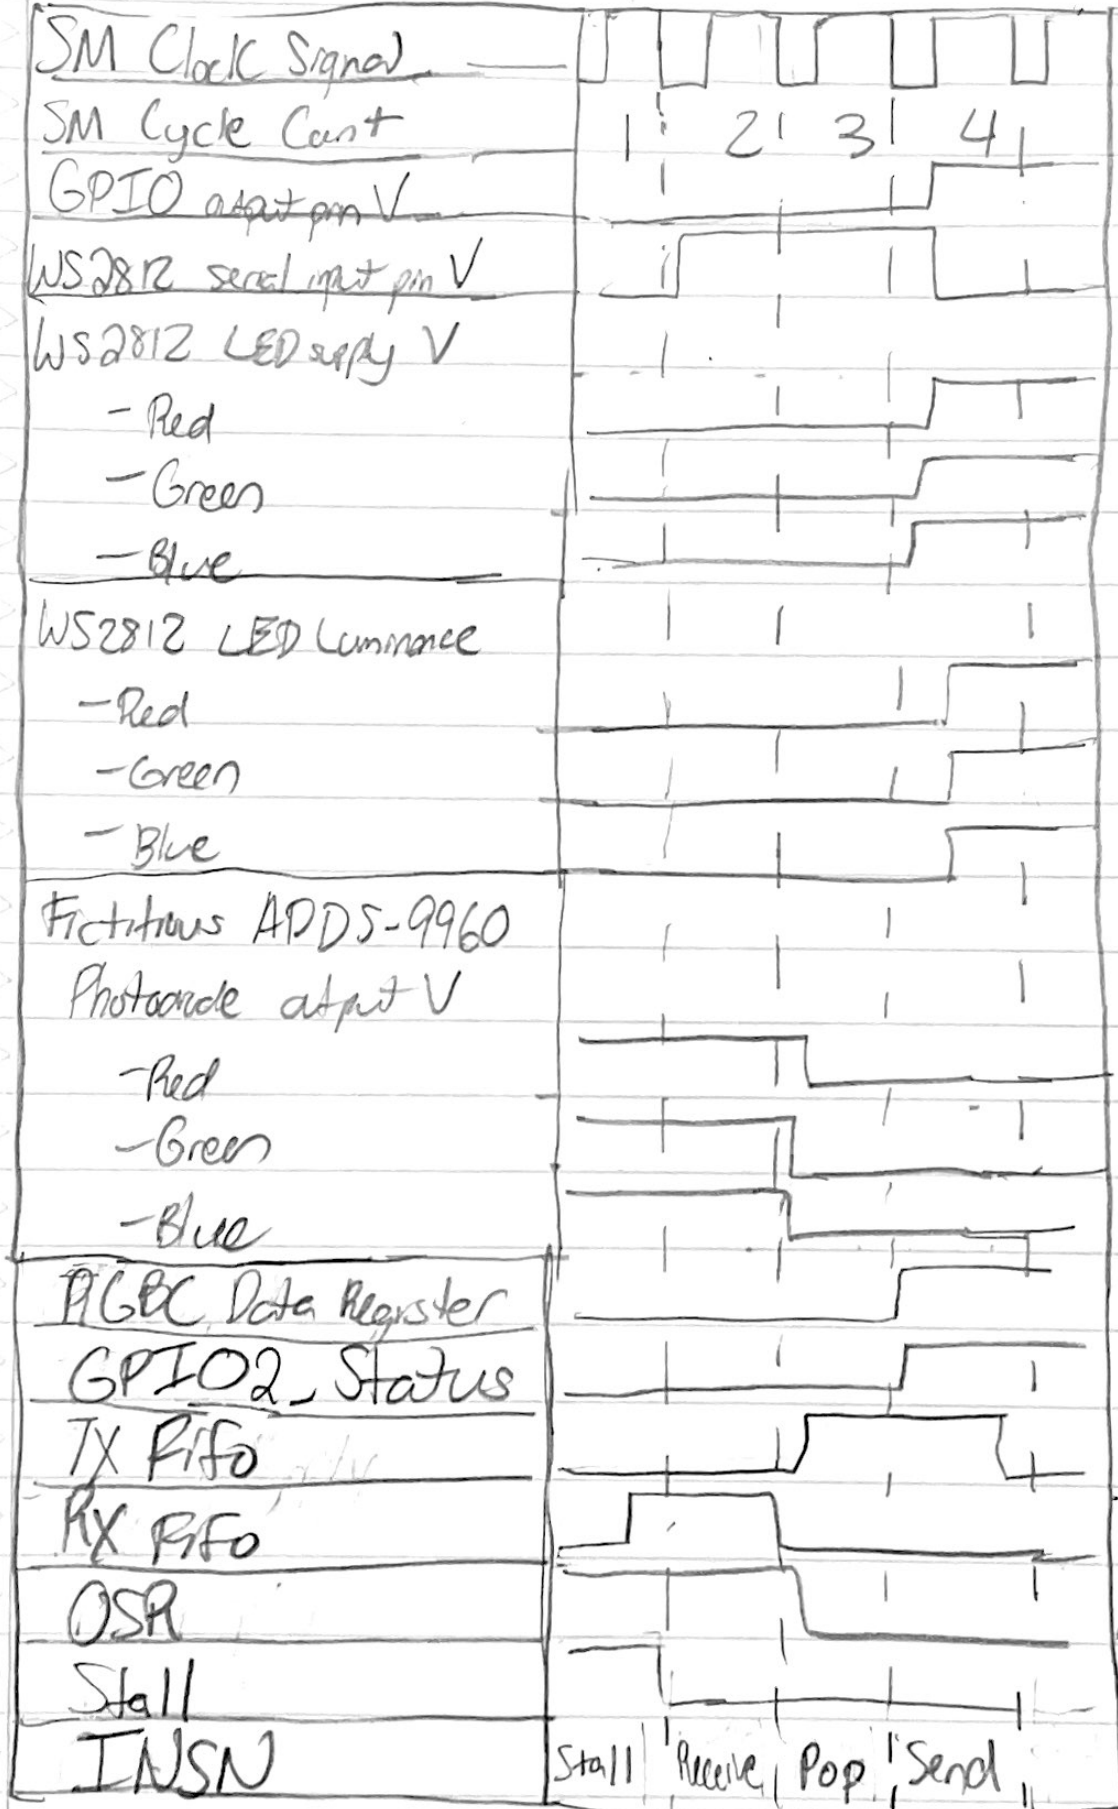 SM Clock Signal
SM Cycle Count
1 2 3 4
GPIO output pin V
WS2812 serial input pin V
WS2812 LED supply V
- Red
- Green
- Blue
WS2812 LED Luminance
- Red
- Green
- Blue
Fictitious APDS-9960
Photodiode output V
- Red
- Green
- Blue
RGBC Data Register
GPIO2_Status
TX Fifo
RX Fifo
OSR
Stall
INSN
Stall Receive Pop Send